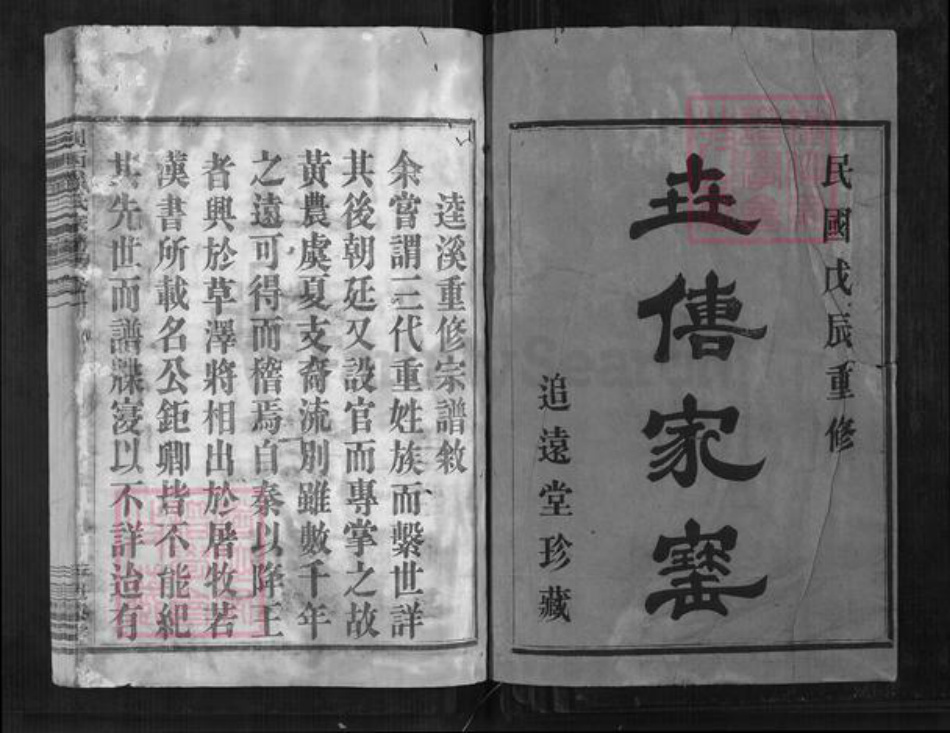 民國戊辰重修
世傳家寶
追遠堂珍藏
逵溪重修宗譜敘
余嘗謂三代重姓族而繫世詳
其後朝廷又設官而專掌之故
黃農虞夏支裔流別雖數千年
之遠可得而稽焉自秦以降王
者興於草澤將相出於屠牧若
漢書所載名公鉅卿皆不能紀
其先世而譜牒寖以不詳迨有